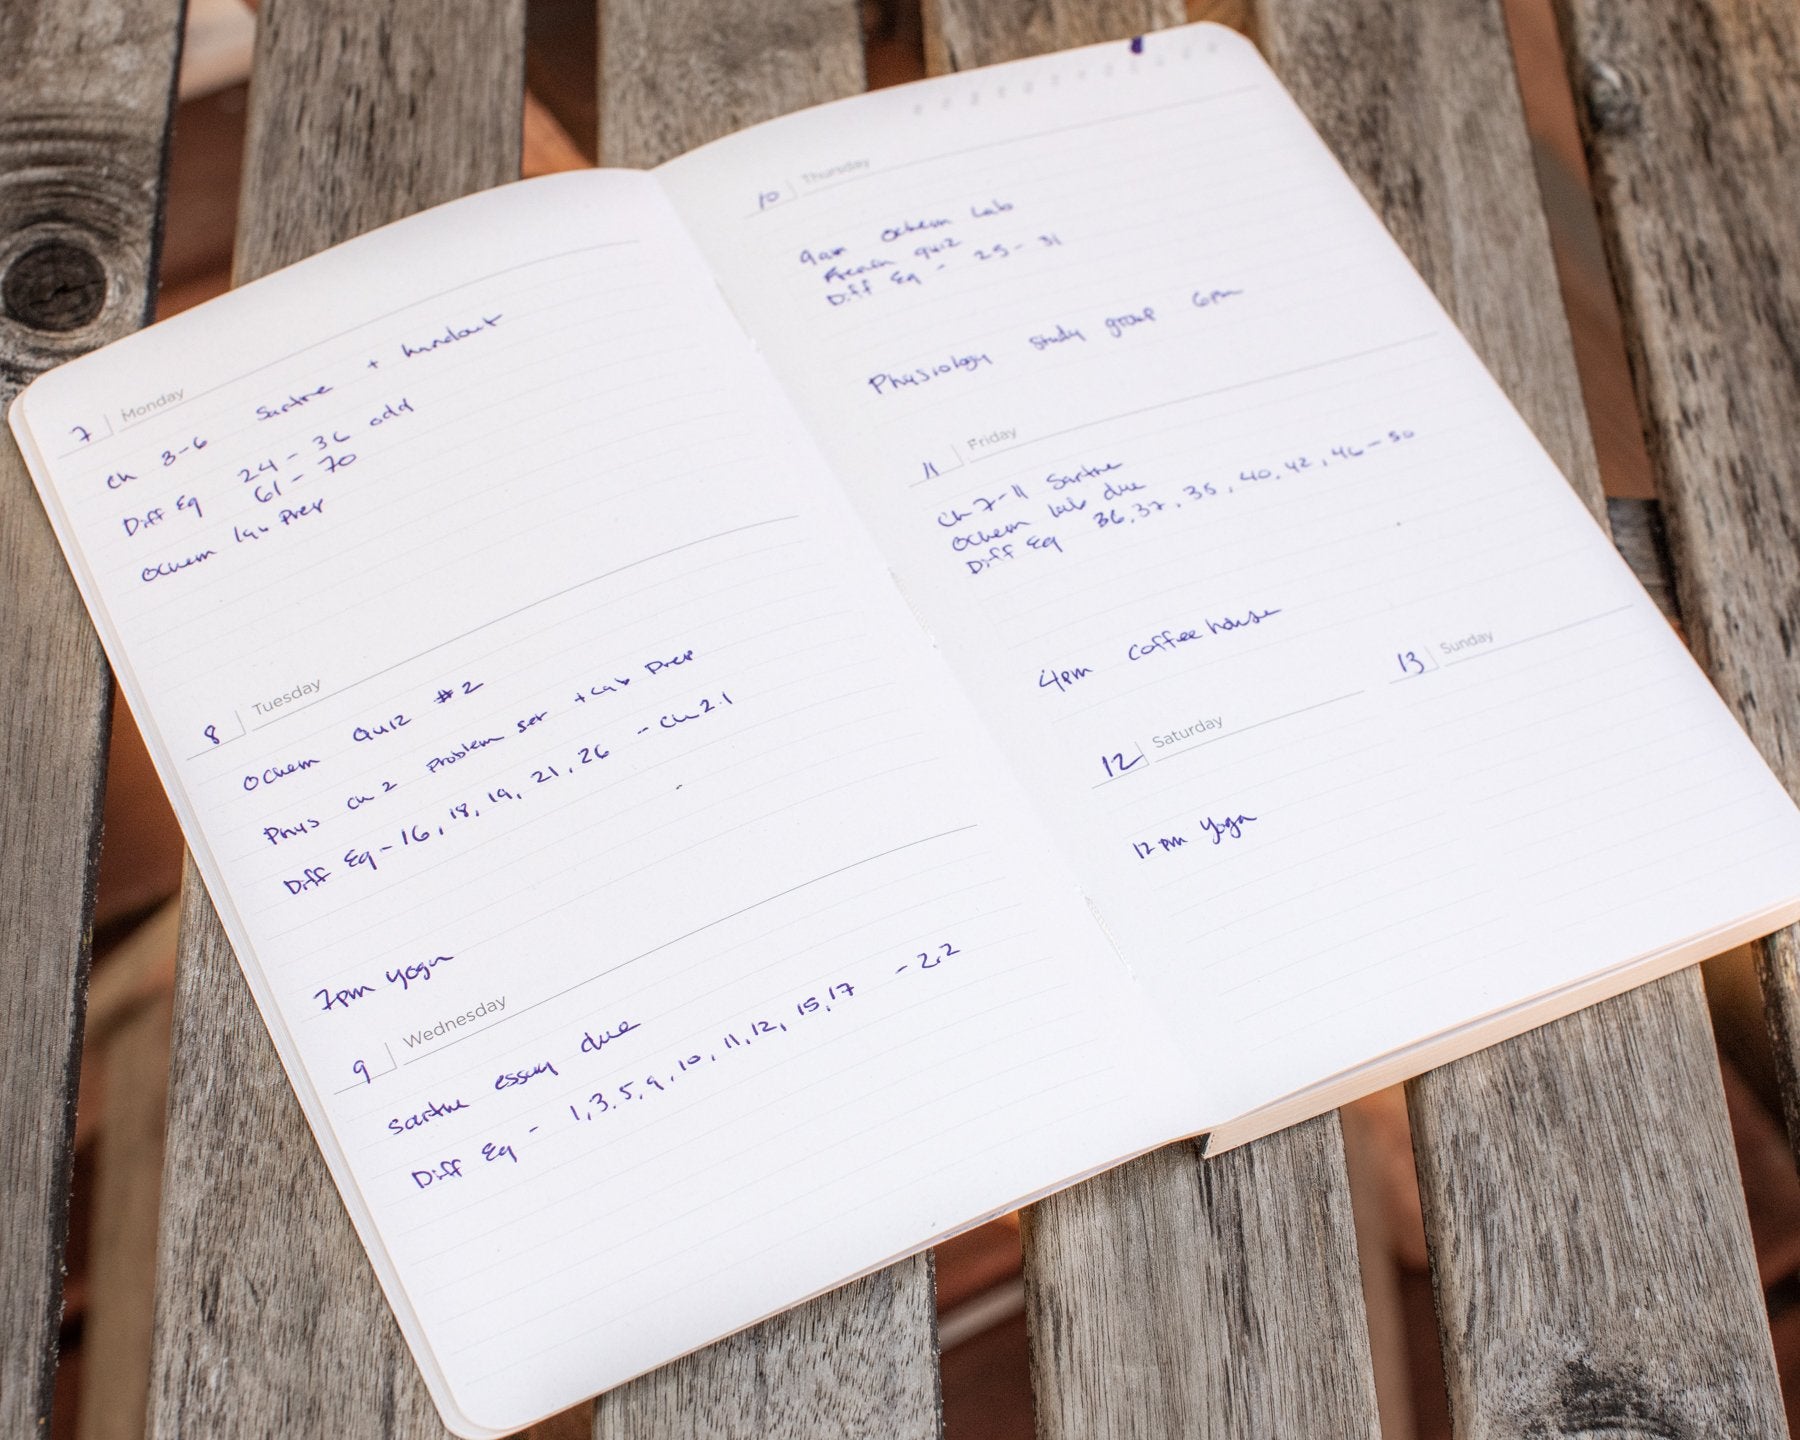 7 Monday
Ch 3-6 Sartre + handout
Diff Eq 24 - 36 odd
61 - 70
Ochem lab Prep
8 Tuesday
Ochem Quiz #2
Phys Ch 2 problem set + Lab Prep
Diff Eq - 16, 18, 19, 21, 26 - Ch 2.1
7pm yoga
9 Wednesday
Sartre essay due
Diff Eq - 1, 3, 5, 9, 10, 11, 12, 15, 17 - 2.2
10 Thursday
9am Ochem Lab
quiz
Diff Eq - 25 - 31
Physiology study group 6pm
11 Friday
Ch 7-11 Sartre
Ochem lab due
Diff Eq 36, 37, 35, 40, 42, 46 - 50
4pm coffee house
12 Saturday
12 pm Yoga
13 Sunday